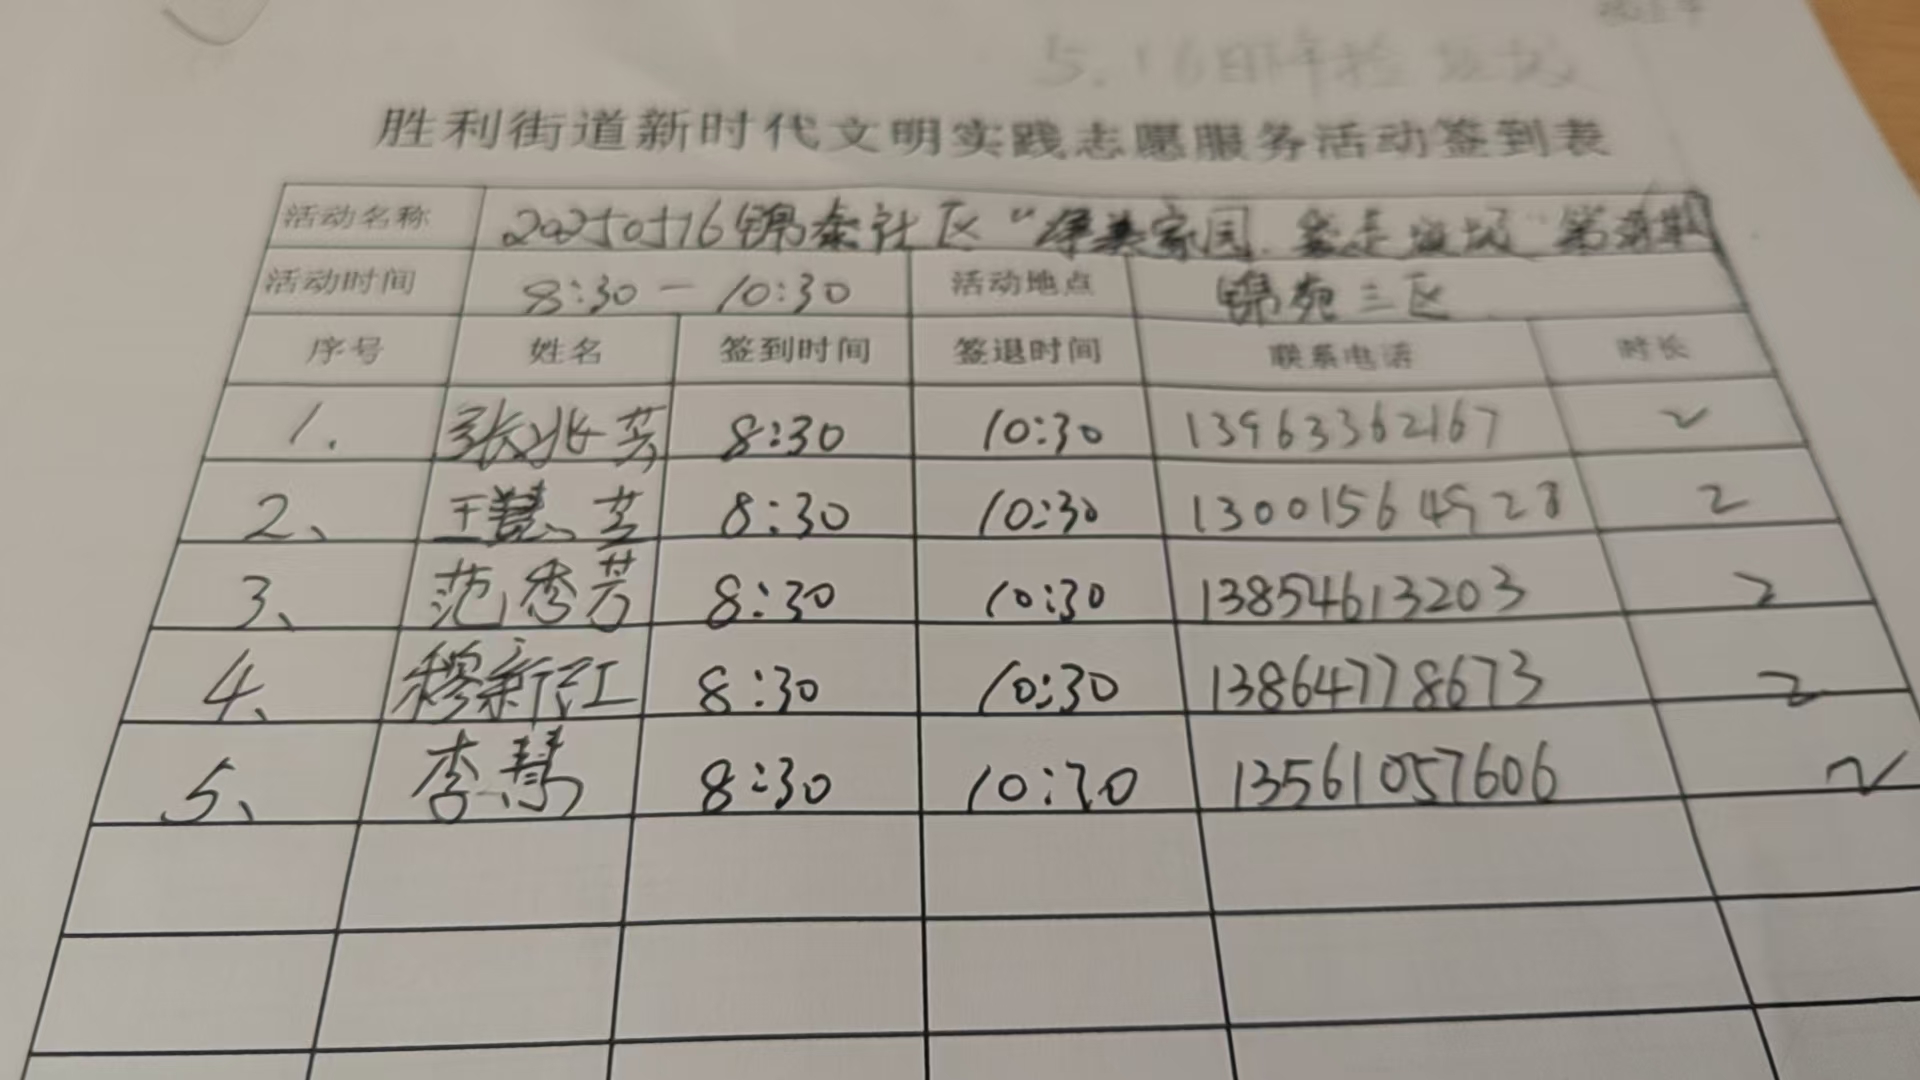 5.16日
胜利街道新时代文明实践志愿服务活动签到表
活动名称 20250516锦泰社区“ 家园
活动时间 8:30－10:30 活动地点 锦苑三区
序号 姓名 签到时间 签退时间 联系电话 时长
1. 张兆芳 8:30 10:30 13963362167 2
2、 王慧芝 8:30 10:30 13001564928 2
3、 范秀芳 8:30 10:30 13854613203 2
4、 穆新红 8:30 10:30 13864778673 2
5、 李慧 8:30 10:30 13561057606 2